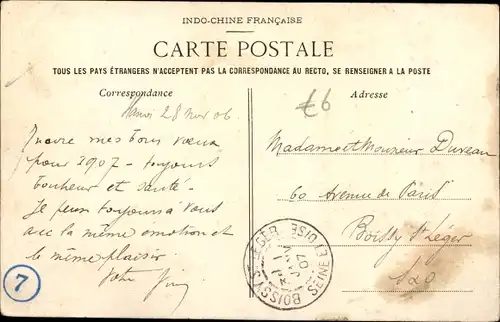 INDO-CHINE FRANÇAISE
CARTE POSTALE
TOUS LES PAYS ÉTRANGERS N'ACCEPTENT PAS LA CORRESPONDANCE AU RECTO, SE RENSEIGNER A LA POSTE
Correspondance
Adresse
Hanoi 28 nov 06
mes bons vœux
pour 1907 - toujours
bonheur et santé -
Je pense toujours à vous
avec la même émotion et
le même plaisir
Votre
7
6
Madame et Monsieur Duveau
60 Avenue de Paris
Boissy St Léger
S & O
BOISSY-ST-LEGER
SEINE ET OISE
1
JANV
07